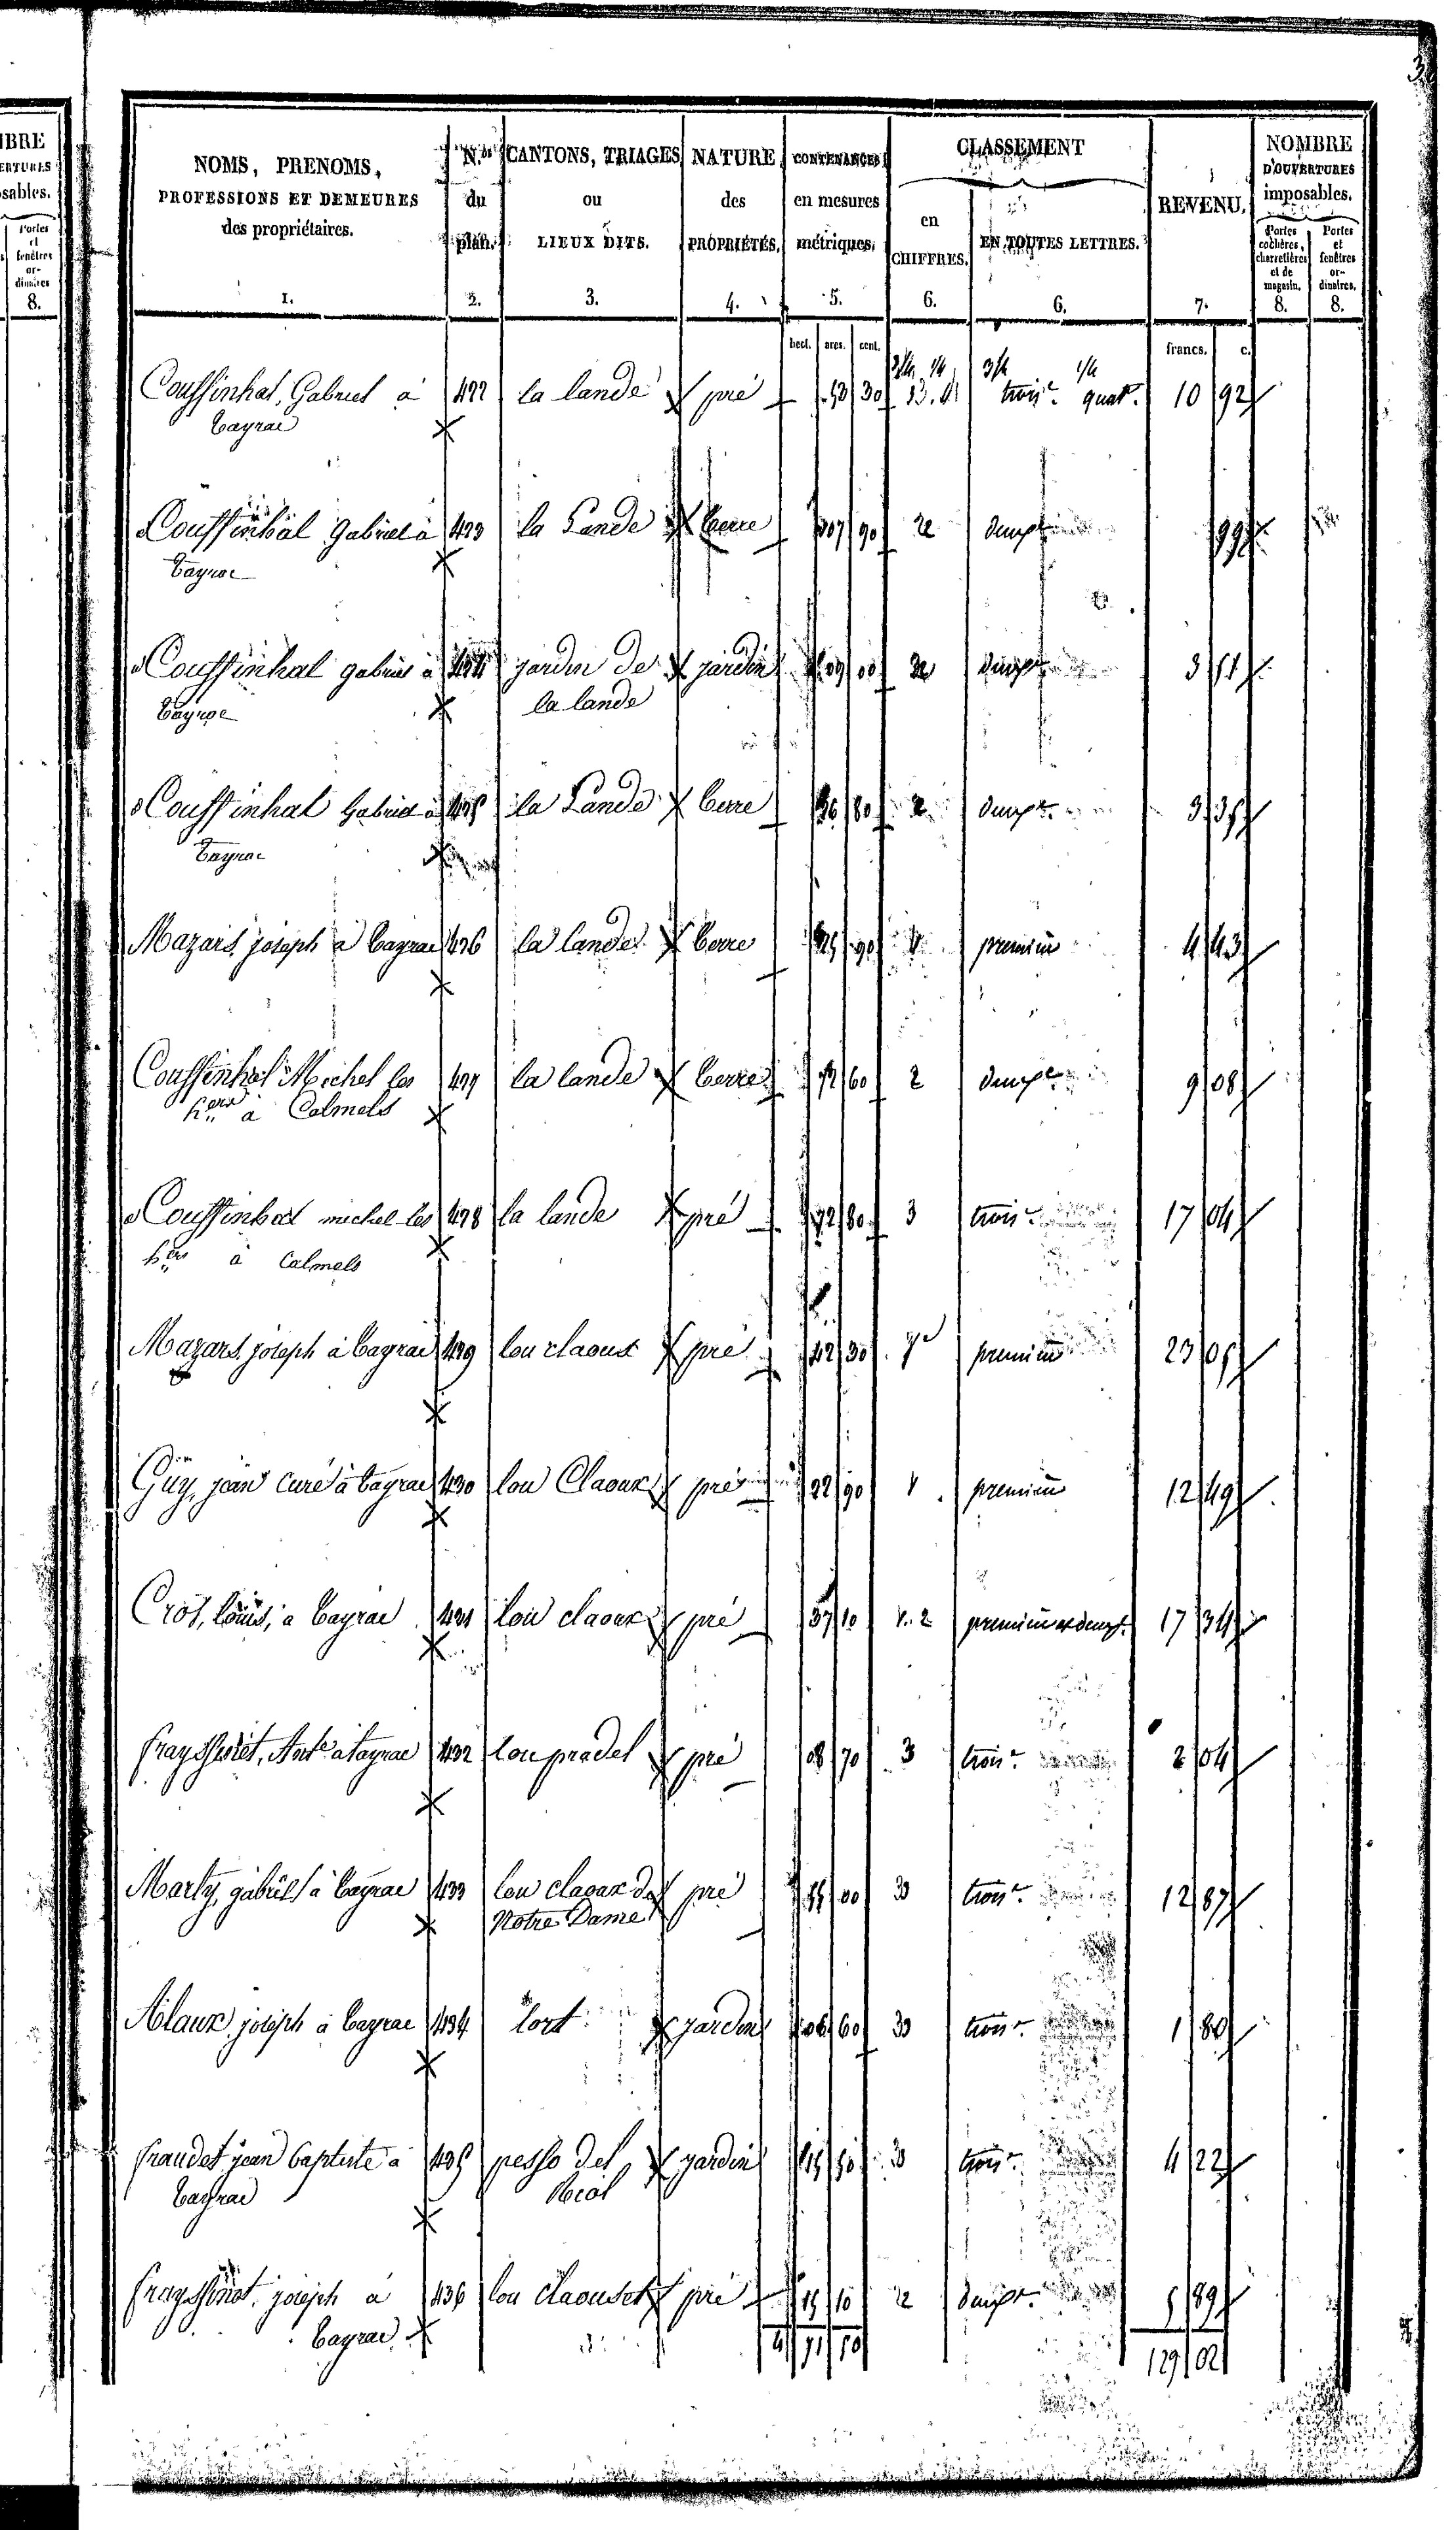 3
NOMS, PRENOMS,
PROFESSIONS ET DEMEURES
des propriétaires.
1.
N.os
du
plan.
2.
CANTONS, TRIAGES
ou
LIEUX DITS.
3.
NATURE
des
PROPRIÉTÉS.
4.
CONTENANCES
en mesures
métriques.
5.
CLASSEMENT
en
CHIFFRES.
6.
EN TOUTES LETTRES.
6.
REVENU.
7.
NOMBRE
D'OUVERTURES
imposables.
Portes
cochères,
charretières
et de
magasin.
8.
Portes
et
fenêtres
or-
dinaires.
8.
hect. ares. cent.
francs. c.
3/4 1/4 3/4 1/4
Couffinhal, Gabriel à 422 la lande pré 53 30 3. 4 trois.e quat.e 10 92
Cayrac
Couffinhal Gabriel à 423 la Lande terre 07 90 2 deux.e 99
Cayrac
Couffinhal gabriel à 424 jardin de jardin 09 00 2 deux.e 3 51
Cayrac la lande
Couffinhal Gabriel à 425 la Lande terre 26 80 2 deux.e 3 35
Cayrac
Mazars joseph à Cayrac 426 la lande terre 25 90 1 premiere 4 43
Couffinhal Michel les 427 la lande terre 72 60 2 deux.e 9 08
h.ers à Calmels
Couffinhal michel les 428 la lande pré 72 80 3 trois.e 17 04
h.ers à Calmels
Mazars joseph à Cayrac 429 lou claoux pré 42 30 premiere 23 05
Guy, jean curé à Cayrac 430 lou Claoux pré 22 90 1 premiere 12 49
Cros, louis, à Cayrac 431 lou claoux pré 37 10 1. 2 premiere et deux.e 17 34
frayssinet, Ant.e à Cayrac 432 lou pradel pré 08 70 3 trois.e 2 04
Marty, gabriel à Cayrac 433 lou claoux de pré 55 00 3 trois.e 12 87
Notre Dame
Alaux joseph à Cayrac 434 lort jardin 06 60 3 trois.e 1 80
fraudet jean baptiste à 435 pesso del jardin 15 50 3 trois.e 4 22
Cayrac
frayssinet, joseph à 436 lou claouset pré 15 10 2 deux.e 5 89
Cayrac 4 71 50
129 02